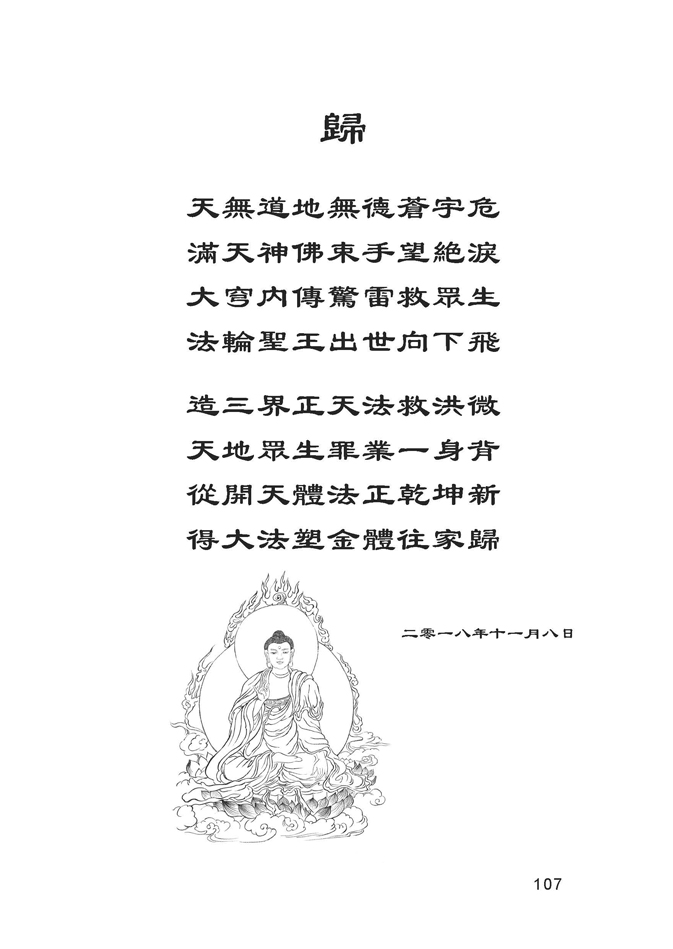 歸
天無道地無德蒼宇危
滿天神佛束手望絕淚
大穹内傳驚雷救眾生
法輪聖王出世向下飛
造三界正天法救洪微
天地眾生罪業一身背
從開天體法正乾坤新
得大法塑金體往家歸
二零一八年十一月八日
107